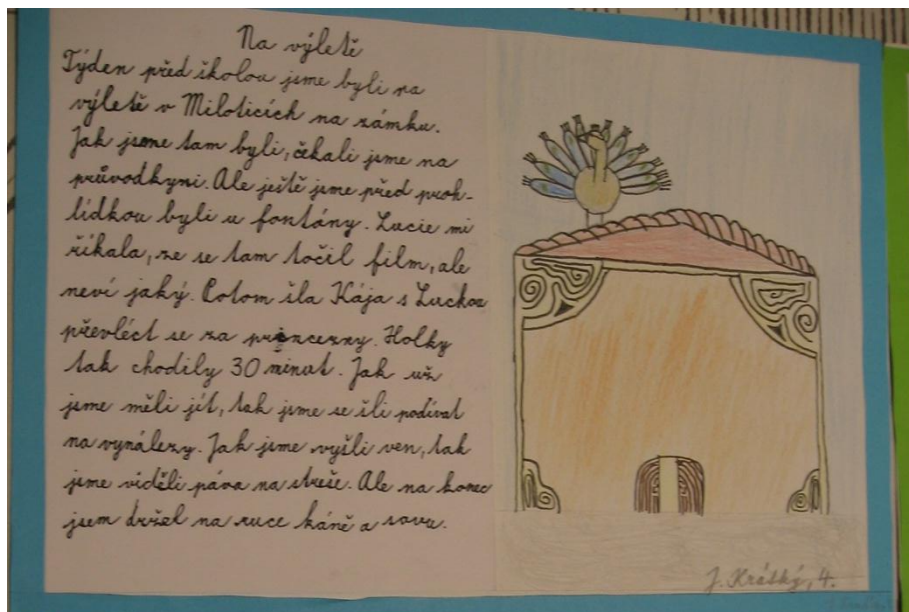 Na výletě
Týden před školou jsme byli na
výletě v Miloticích na zámku.
Jak jsme tam byli, čekali jsme na
průvodkyni. Ale ještě jsme před proh-
lídkou byli u fontány. Lucie mi
říkala, že se tam točil film, ale
neví jaký. Potom šla Kája s Luckou
převléct se za princezny. Holky
tak chodily 30 minut. Jak už
jsme měli jít, tak jsme se šli podívat
na vynálezy. Jak jsme vyšli ven, tak
jsme viděli páva na střeše. Ale na konec
jsem držel na ruce káně a sovu.
J. Krátký, 4.